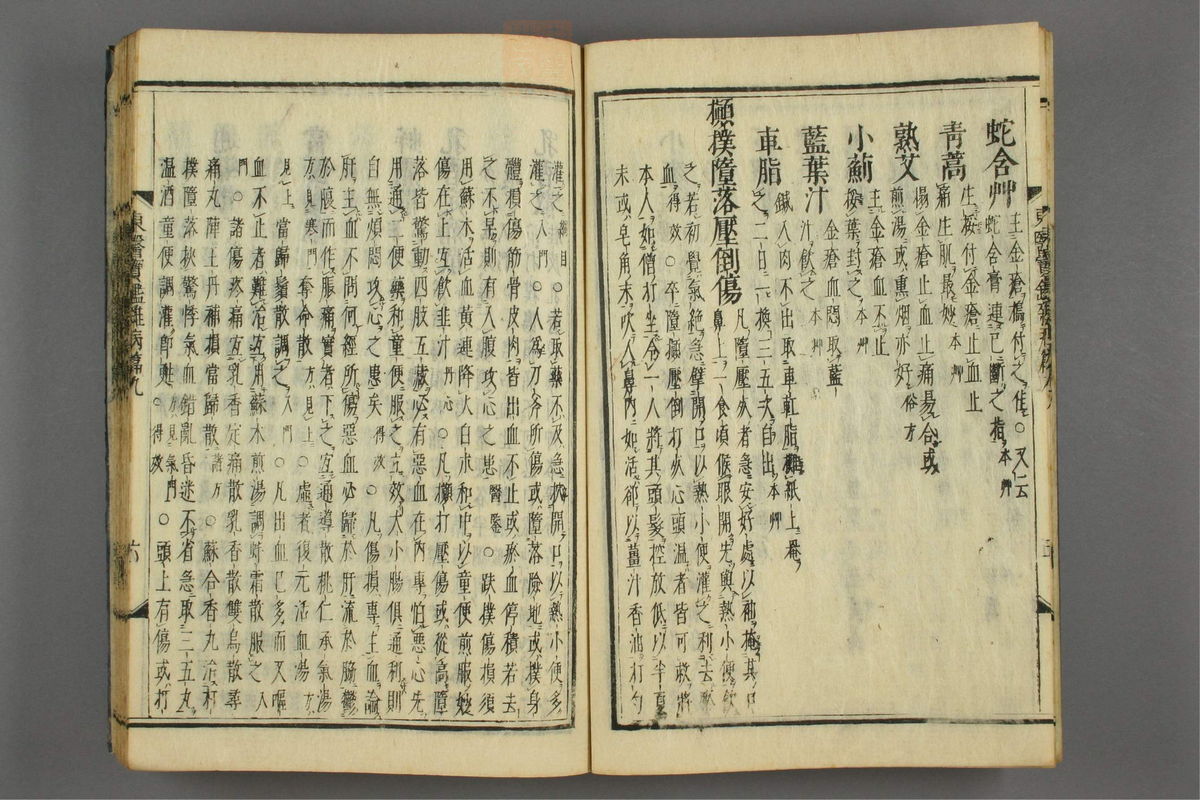 蛇含艸 主金瘡搗付之佳○又云
蛇含膏連已斷之指本艸
青蒿 生挼付金瘡止血止
痛生肌最妙本艸
熟艾 煎湯或熏烟亦好俗方
主金瘡血不止
小薊 挼葉封之本艸
藍葉汁 金瘡血悶取藍
汁飲之本艸
車脂 鍼入肉不出取車釭脂攤紙上罨
之二日一換三五次自出本艸
攧撲墮落壓倒傷 凡墮壓死者急安好處以袖掩其口
鼻上一食頃候眼開先與熱小便飲
之若初覺氣絶急擘開口以熱小便灌之利去瘀
血得效○卒墮攧壓倒打死心頭温者皆可救將
本人如僧打坐令一人將其頭髮控放低以半夏
末或皂角末吹入鼻內如活却以薑汁香油打匀
灌之綱目○若取藥不及急挖開口以熱小便多
灌之入門○人爲刀斧所傷或墮落險地或撲身
體損傷筋骨皮肉皆出血不止或瘀血停積若去
之不早則有入腹攻心之患醫鑑○跌撲傷損須
用蘇木活血黃連降火白朮和中以童便煎服妙
傷在上宜飲韭汁丹心○凡攧打壓傷或從高墮
落皆驚動四肢五藏必有惡血在內專怕惡心先
用通二便藥和童便服之立效大小腸俱通利則
自無煩悶攻心之患矣得效○凡傷損專主血論
肝主血不問何經所傷惡血必歸於肝流於脇鬱
於腹而作脹痛實者下之宜通導散桃仁承氣湯
方見寒門奪命散方見上虛者復元活血湯方
見上當歸鬚散調之入門○凡出血已多而又嘔
血不止者難治宜用蘇木煎湯調蚌霜散服之入
門○諸傷疼痛宜乳香定痛散乳香散雙烏散尋
痛丸陣王丹補損當歸散諸方○蘇合香丸治打
撲墮落秋驚悸氣血錯亂昏迷不省急取三五丸
温酒童便調灌卽甦方見氣門得效○頭上有傷或打
六